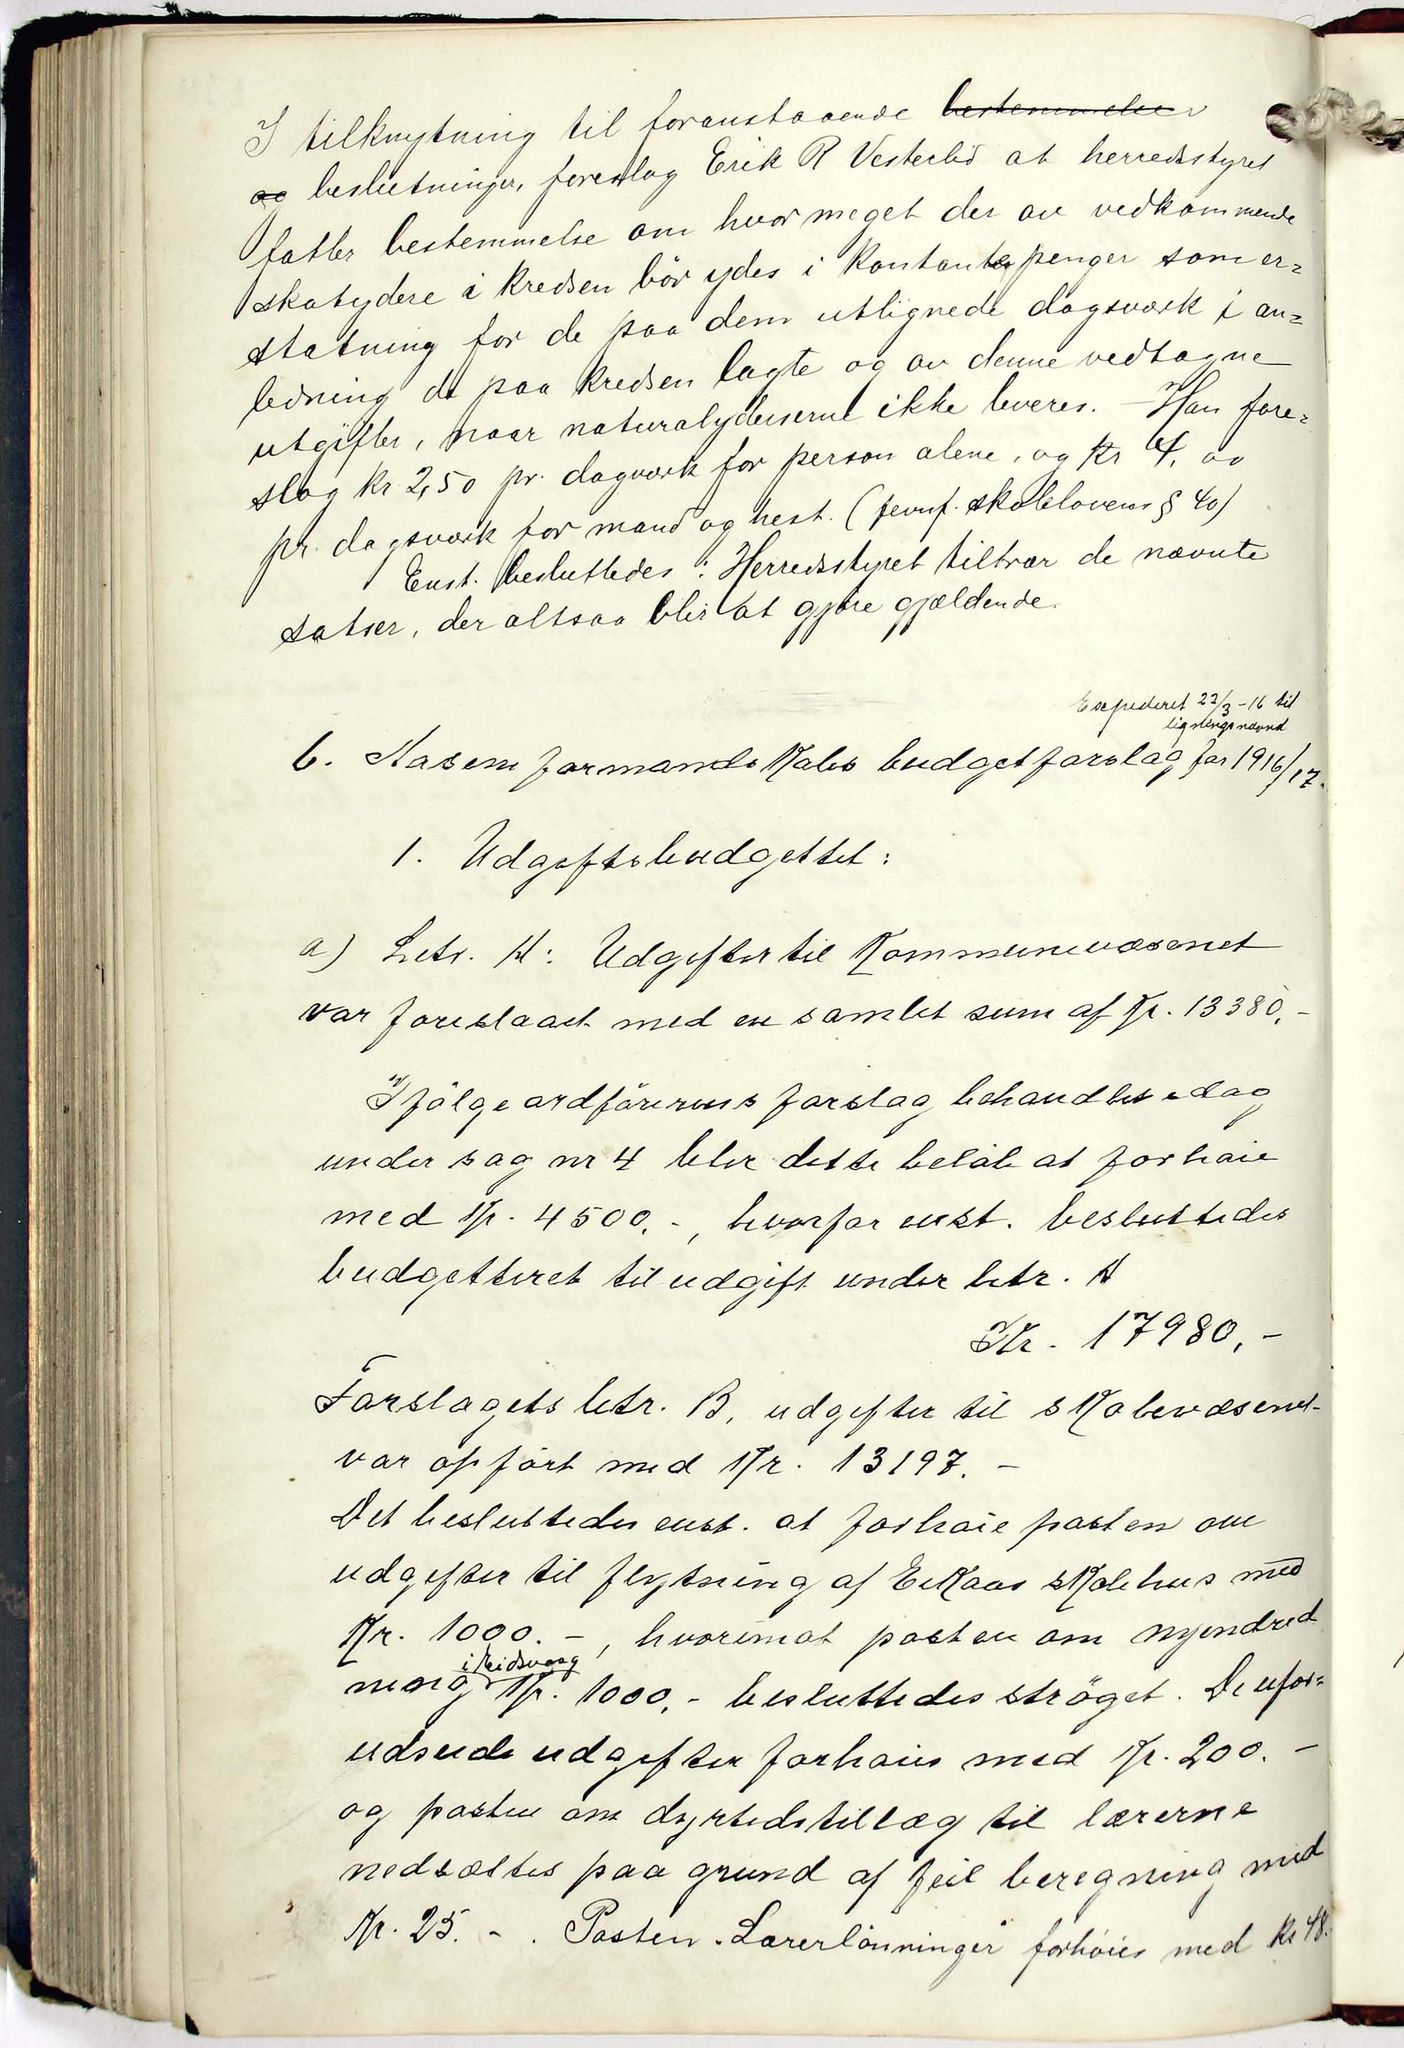 I tilknytning til foranstaaende bestemmelser
og beslutninger, foreslog Erik R Vesterlid at herredsstyret
fatter bestemmelse om hvor meget der av vedkommende
skatydere i kredsen bör ydes i kontante penger som er=
statning for de paa dem utlignede dagsverk i an=
ledning de paa kredsen lagte og av denne vedtagne
utgifter, naar naturalydelserne ikke leveres. – Han fore=
slog kr 2,50 pr. dagverk for person alene, og kr 4, oo
pr. dagsverk for mand og hest. (jevnf. skolelovens § 40)
Enst. besluttedes: Herredsstyret tiltrær de nævnte
satser, der altsaa blir at gjöre gjældende.
Expederet 22/3 – 16 til
ligningsnævnd
6. Aasens formandskabs budgetforslag for 1916/17.
1. Udgiftsbudgettet:
a) Letr. A: Udgifter til Kommunevæsenet
var foreslaaet med en samlet sum af Kr. 13380,-
Ifölge ordförerens forslag behandlet idag
under sag nr 4 blir dette belöb at forhöie
med Kr. 4500,-, hvorfor enst. besluttedes
budgetteret til udgift under letr. A
Kr. 17980,-
Forslagets letr. B, udgifter til skolevæsenet
var opfört med Kr. 13197.-
Det besluttedes enst. at forhöie posten om
udgifter til flytning af Ekaas skolehus med
Kr. 1000.-, hvorimot posten om nyindred
ning i Eidsvaag Kr. 1000,- besluttedes ströget. De ufor=
udseede udgifter forhöies med Kr. 200.-
og posten om dyrtidstillæg til lærerne
nedsættes paa grund af feil beregning med
Kr. 25.-. Posten "Lærerlönninger" forhöies med kr 48.